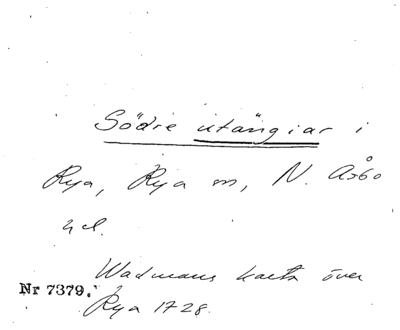 Södre utängiar i
Rya, Rya sn, N. Åsbo
hd.
Wadmans karta över
Nr 7379.
Rya 1728.